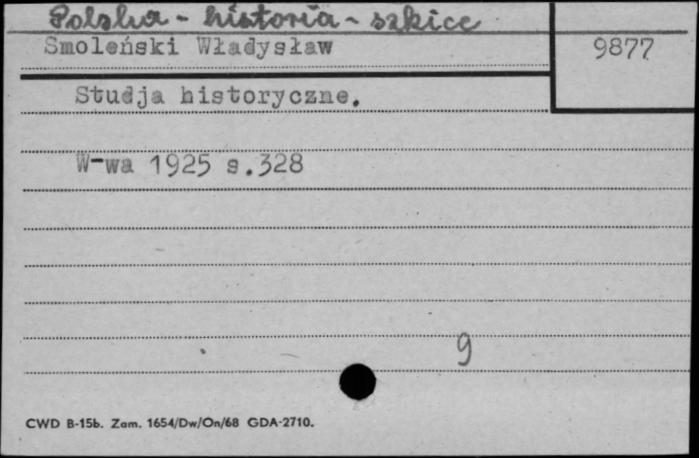 Polska - historia - szkice
Smoleński Władysław
9877
Studja historyczne.
W-wa 1925 s.328
9
CWD B-15b. Zam. 1654/Dw/On/68 GDA-2710.